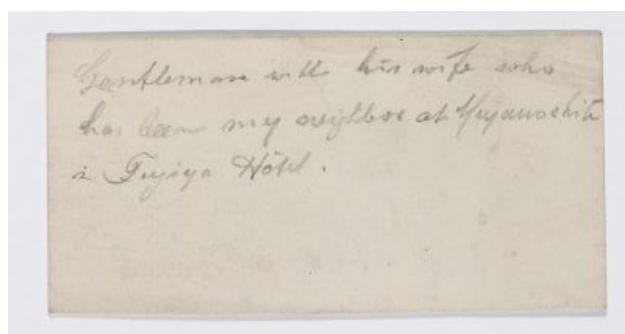 Gentleman with his wife who
has been my neighbor at Miyanoshita
in Fujiya Hôtel.